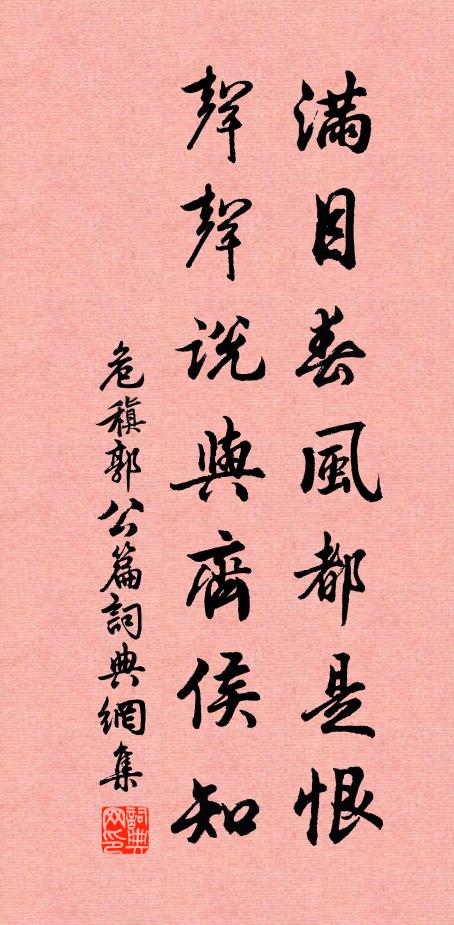 滿目春風都是恨
聲聲説與齊侯知
危稹郭公篇詞典網集
詞典网印